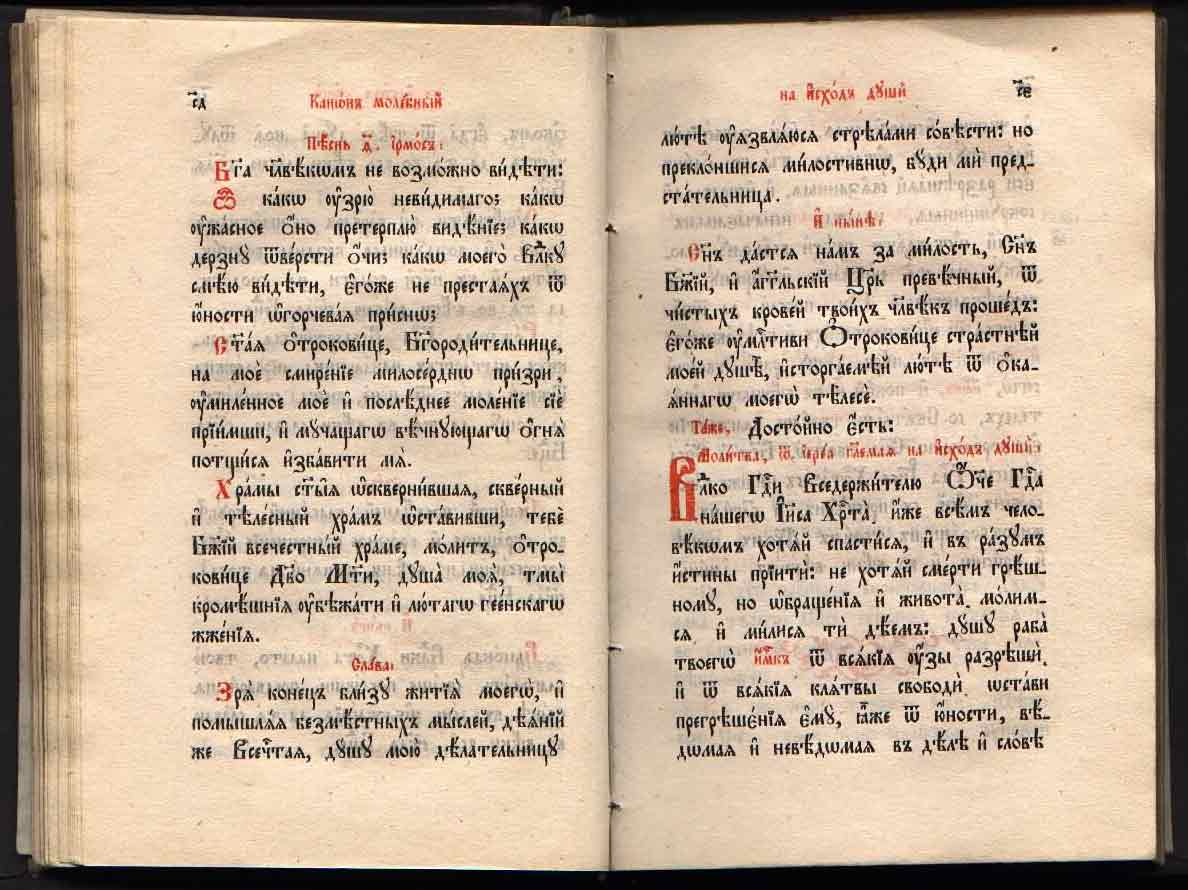 с҃д
Канѡ́нъ моле́бный
Пѣ́снь ѳ҃. і҆рмо́съ:
Бг҃а чл҃вѣ́кѡмъ не возмо́жно ви́дѣти:
Ѽ ка́кѡ ᲂу҆зрю̀ неви́димаго; ка́кѡ
ᲂу҆жа́сное ѻ҆́но претерплю̀ видѣ́нїе; ка́кѡ
дерзнꙋ̀ ѿве́рсти ѻ҆́чи; ка́кѡ моего̀ Влⷣкꙋ
смѣ́ю ви́дѣти, є҆го́же не преста́ѧхъ ѿ
ю҆́ности ѡ҆горчева́ѧ при́снѡ;
Ст҃а́ѧ ѻ҆трокови́це, Бг҃ороди́тельнице,
на моѐ смире́нїе милосе́рднѡ при́зри,
ᲂу҆миле́нное моѐ и҆ послѣ́днее моле́нїе сїѐ
прїи́мши, и҆ мꙋ́чащагѡ вѣ́чнꙋющагѡ ѻ҆гнѧ̀
потщи́сѧ и҆зба́вити мѧ̀.
Хра́мы ст҃ы̑ѧ ѡ҆скверни́вшаѧ, скве́рный
и҆ тѣле́сный хра́мъ ѡ҆ста́вивши, тебѐ
Бж҃їй всечестны́й хра́ме, мо́литъ, ѻ҆тро-
кови́це Дв҃о Мт҃и, дꙋша̀ моѧ̀, тмы̀
кромѣ́шнїѧ ᲂу҆бѣжа́ти и҆ лю́тагѡ гее́нскагѡ
жже́нїѧ.
Сла́ва:
Зрѧ̀ коне́цъ бли́зꙋ житїѧ̀ моегѡ̀, и҆
помышлѧ́ѧ безмѣ́стныхъ мы́слей, дѣѧ́нїй
же Всечⷭ҇таѧ, дꙋ́шꙋ мою̀ дѣ́лательницꙋ
на и҆схо́дъ дꙋшѝ
с҃є
лю́тѣ ᲂу҆ѧзвлѧ́юсѧ стрѣла́ми со́вѣсти: но
прекло́ншисѧ ми́лостивнѡ, бꙋ́ди мѝ пред-
ста́тельница.
И҆ ны́нѣ:
Сн҃ъ да́стсѧ на́мъ за ми́лость, Сн҃ъ
Бж҃їй, и҆ а҆́гг҃льскїй Цр҃ь превѣ́чный, ѿ
чи́стыхъ крове́й твои́хъ чл҃вѣ́къ проше́дъ:
є҆го́же ᲂу҆млⷭ҇тиви Ѻ҆трокови́це стра́стнѣй
мое́й дꙋшѣ̀, и҆сторга́емѣй лю́тѣ ѿ ѻ҆ка-
ѧ́ннагѡ моегѡ̀ тѣлесѐ.
Та́же, Досто́йно є҆́сть:
Моли́тва, ѿ і҆ере́а гл҃емаѧ на и҆схо́дъ дꙋшѝ:
Влⷣко Гдⷭ҇и Вседержи́телю Ѻ҆́ч҃е Гдⷭ҇а
на́шегѡ І҆и҃са Хрⷭ҇та̀, и҆́же всѣ̑мъ чело-
вѣ́кѡмъ хотѧ́й спасти́сѧ, и҆ въ ра́зꙋмъ
и҆́стины прїитѝ: не хотѧ́й сме́рти грѣ́ш-
номꙋ, но ѡ҆браще́нїѧ и҆ живота̀. мо́лим-
сѧ и҆ ми́лисѧ тѝ дѣ́емъ: дꙋ́шꙋ раба̀
твоегѡ̀ и҆́м҃къ ѿ всѧ́кїѧ ᲂу҆́зы разрѣшѝ,
и҆ ѿ всѧ́кїѧ клѧ́твы свободѝ, ѡ҆ста́ви
прегрѣшє́нїѧ є҆мꙋ̀, ꙗ҆̀же ѿ ю҆́ности, вѣ̑-
дѡмаѧ и҆ невѣ̑дѡмаѧ въ дѣ́лѣ и҆ сло́вѣ